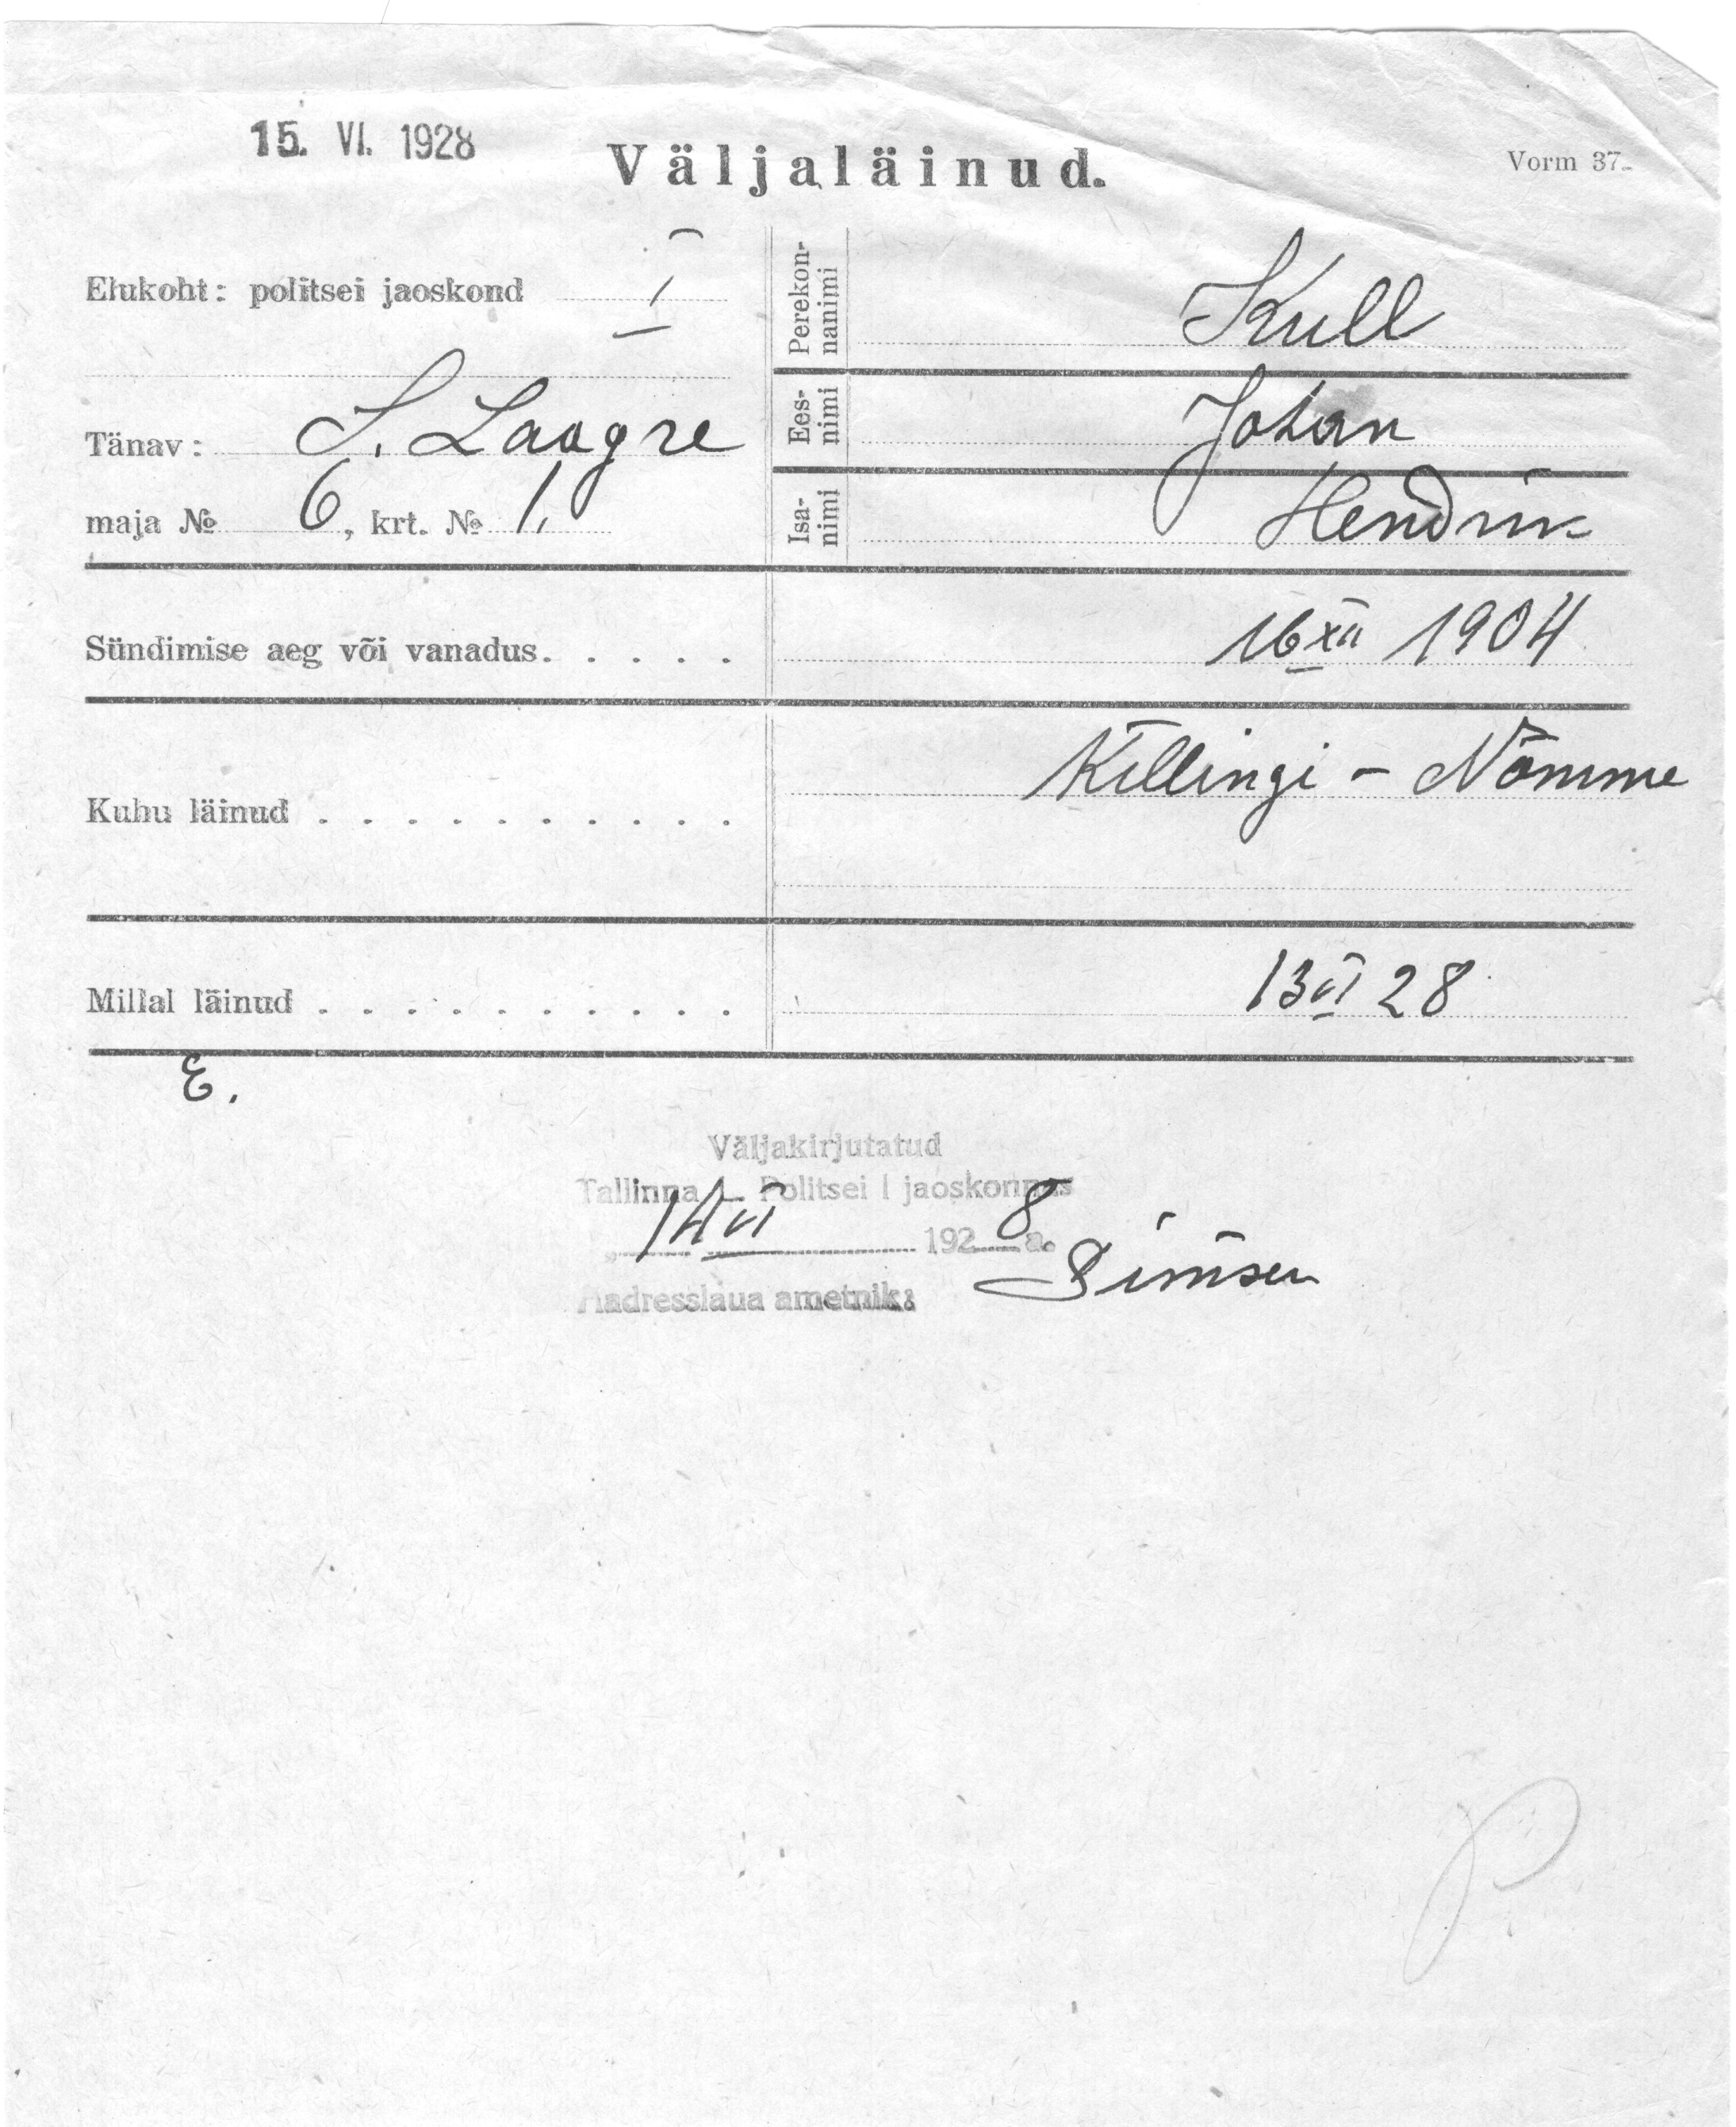 15. VI. 1928
Väljaläinud.
Vorm 37.
Elukoht: politsei jaoskond I
Tänav: S. Laagre
maja № 6, krt. № 1.
Perekon-
nanimi
Kull
Ees-
nimi
Johan
Isa-
nimi
Hendrik
Sündimise aeg või vanadus. . . . . 16 XII 1904
Kuhu läinud . . . . . . . . . . Killingi - Nõmme
Millal läinud . . . . . . . . . . 13 VI 28
E.
Väljakirjutatud
Tallinna L. Politsei I jaoskonnas
14 VI 1928 a.
Aadresslaua ametnik:
P